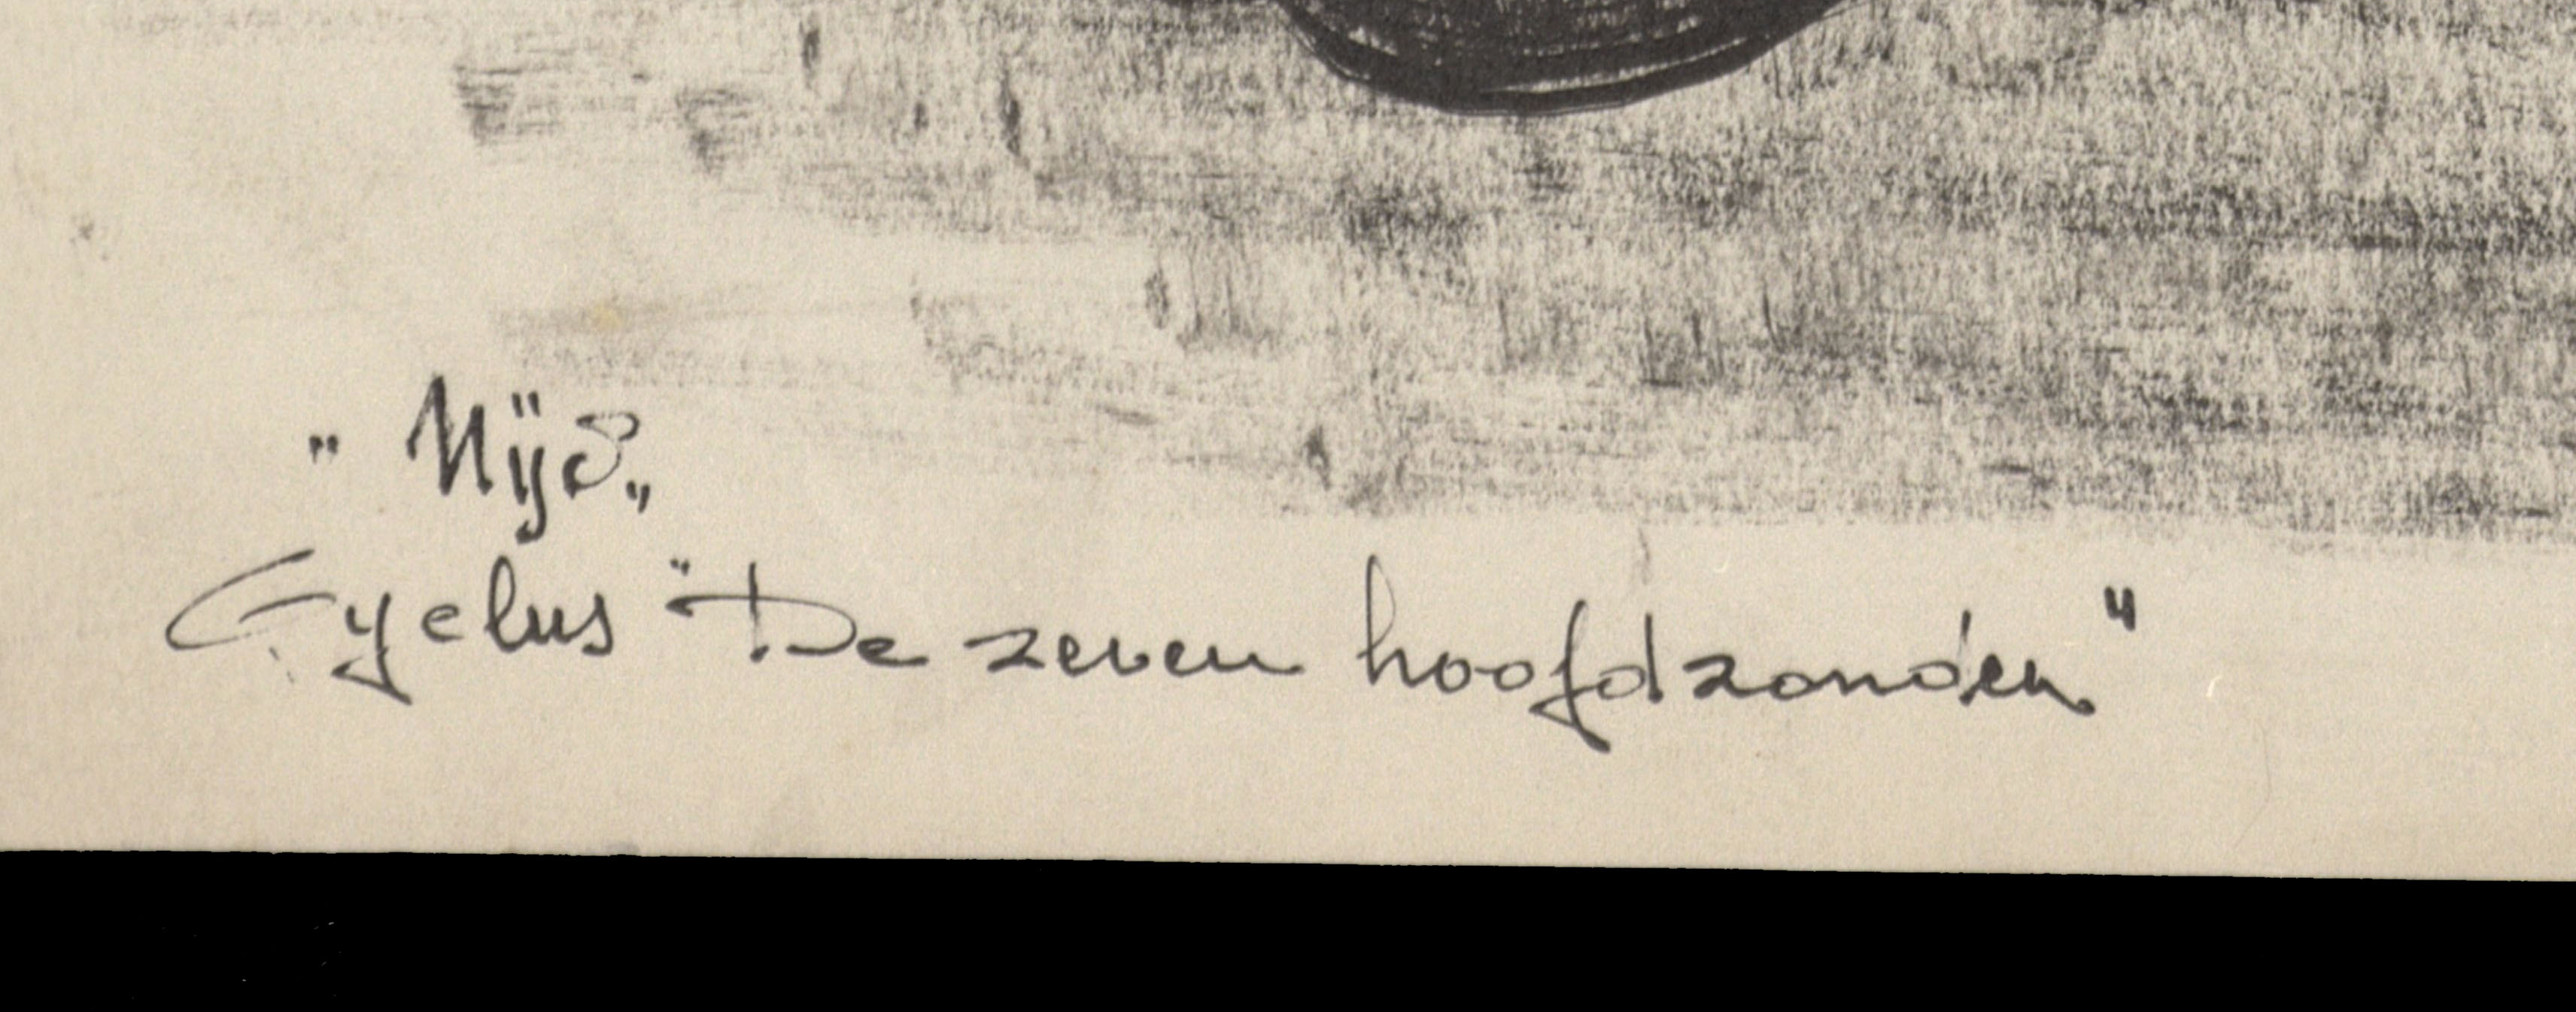 " Nijd „
Cyclus "De zeven hoofdzonden"